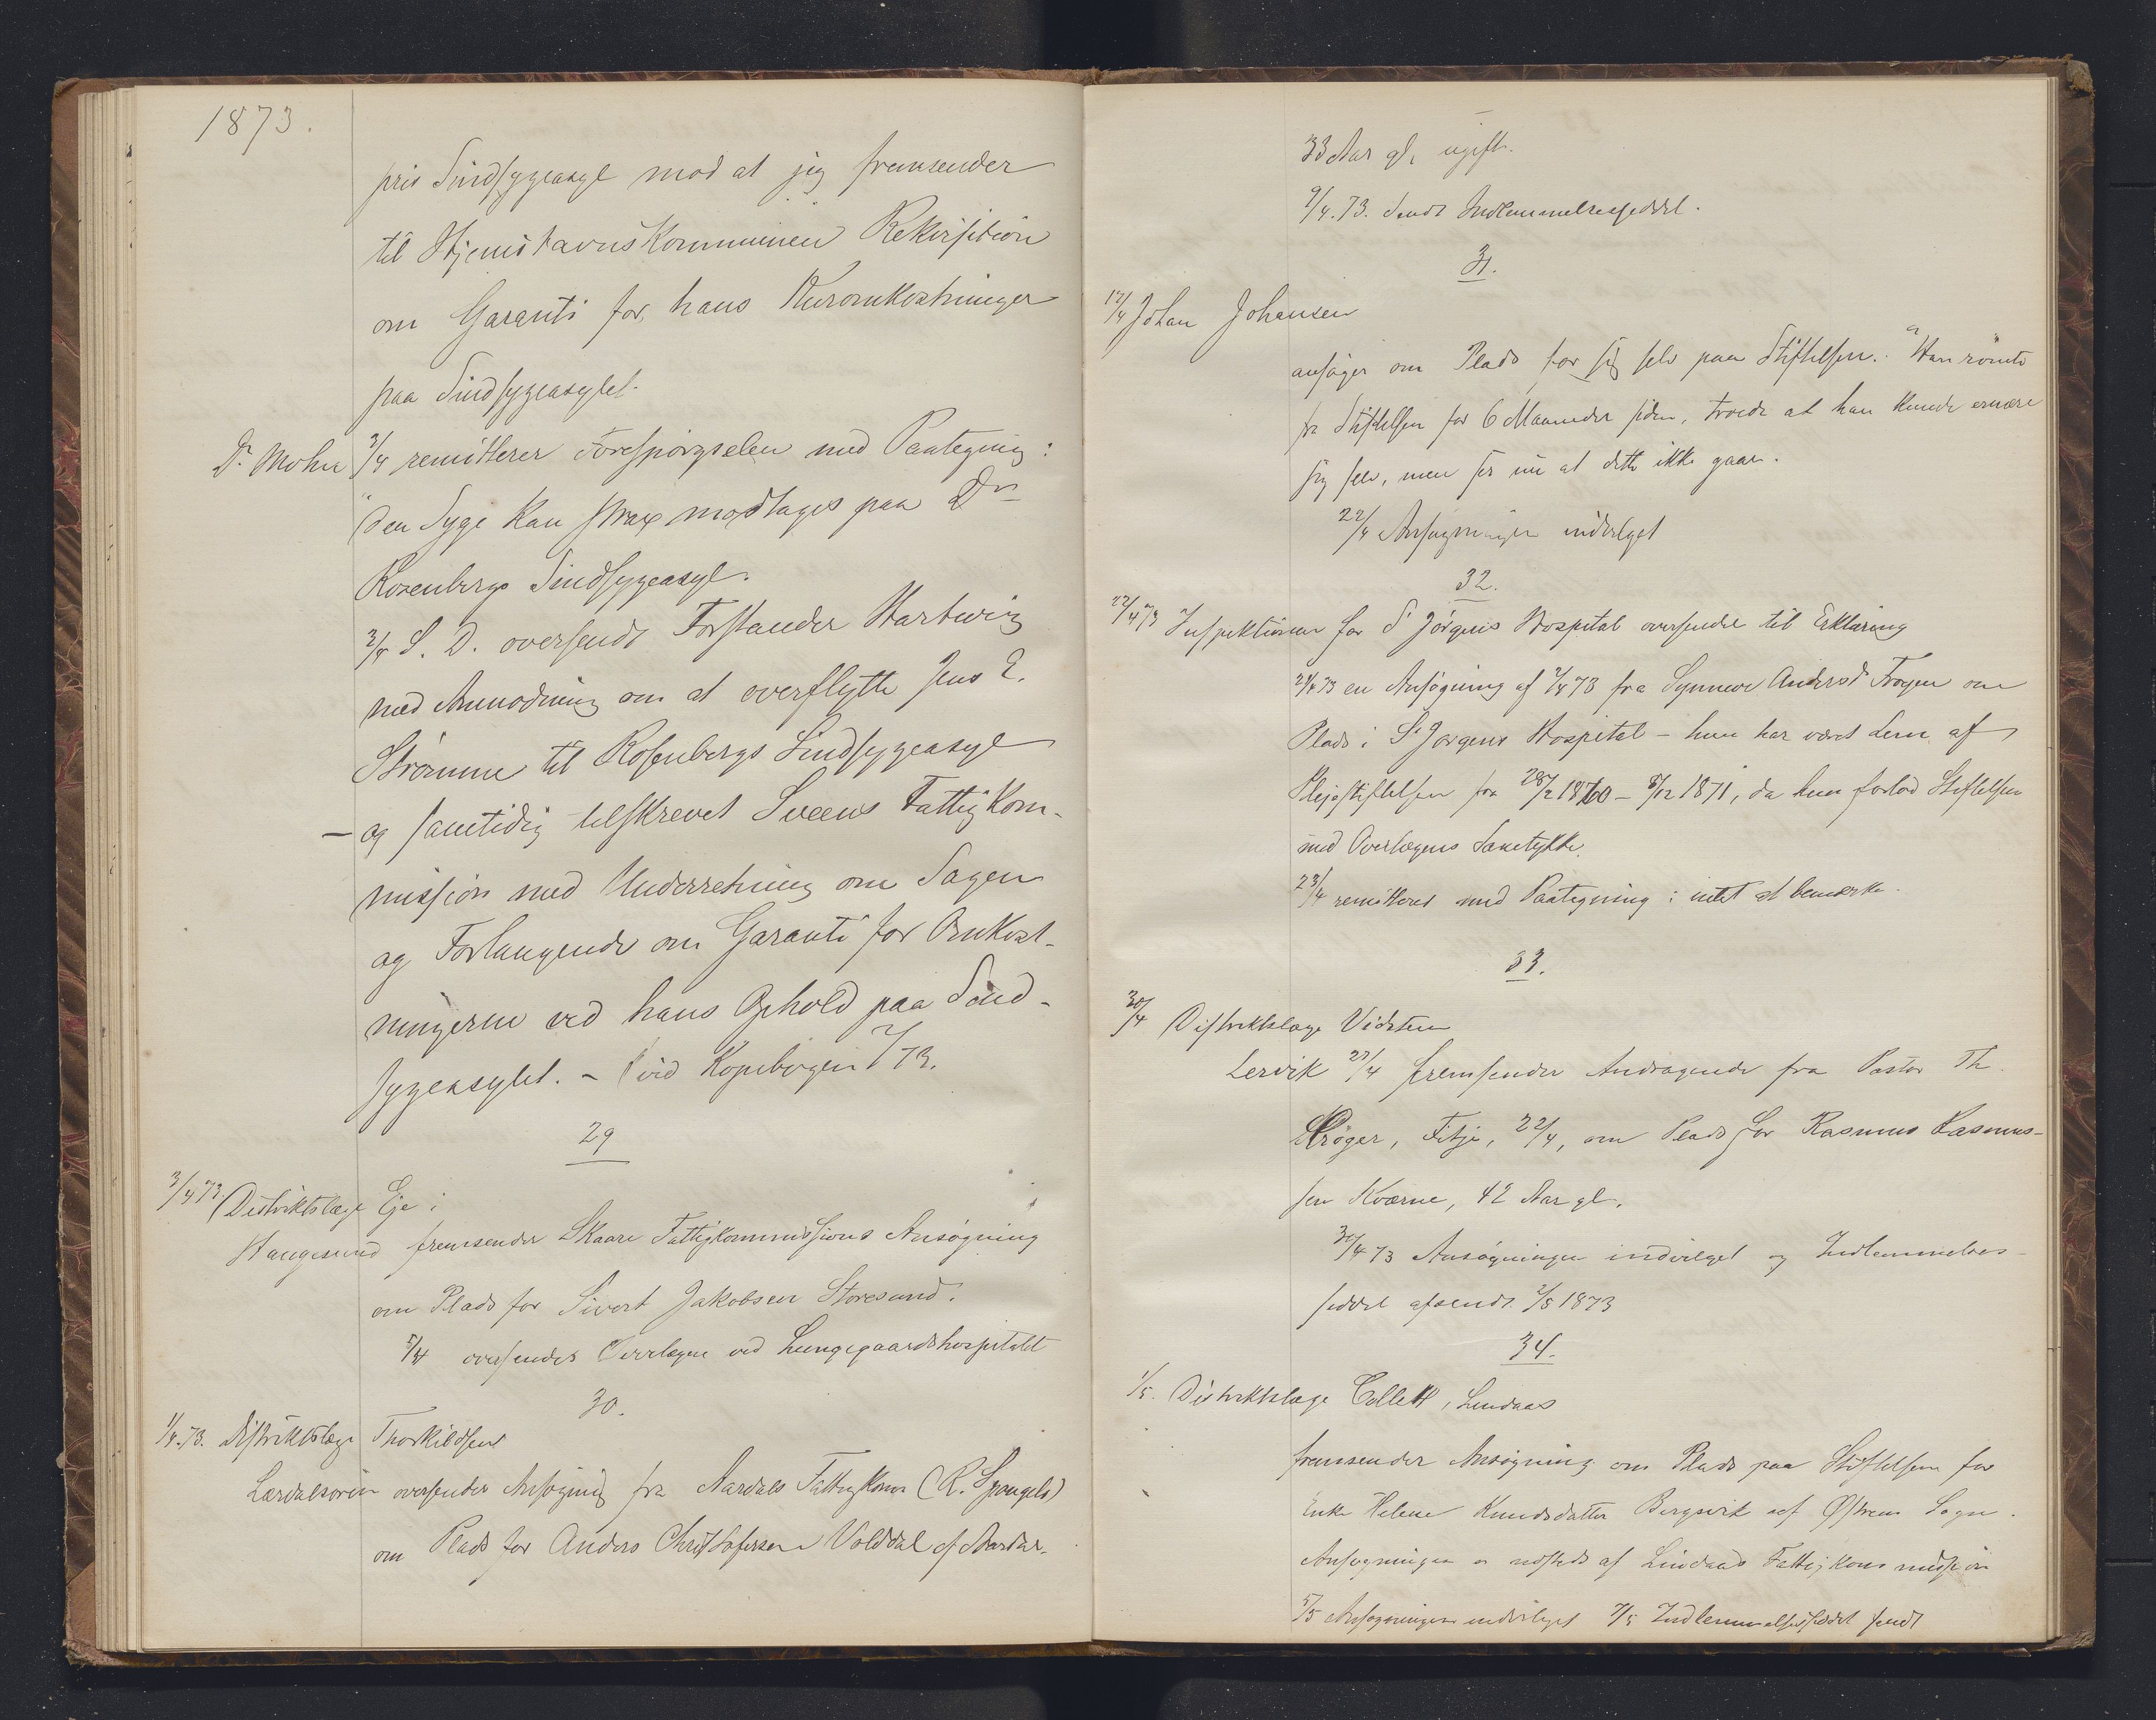 1873.
pris Sindsygeasyl mod at jeg fremsender
til Hjemstavnskommunen Rekvisition
om Garanti for hans Kuromkostninger
paa Sindsygeasylet.
Dr. Mohn 3/4 remitterer Forespørgselen med Paategning:
"Den Syge kan strax modtages paa Drs
Rosenbergs Sindsygeasyl.
3/4 S. D. oversendt Forstander Hartwig
med Anmodning om at overflytte Jens E.
Strømme til Rosenbergs Sindsygeasyl
– og samtidig tilskrevet Sveens Fattigkom-
mission med Underretning om Sagen
og Forlangende om Garanti for Omkost-
ningerne ved hans Ophold paa Sind-
sygeasylet. – (vid Kopibogen 73.
29
3/4 73. Distriktslæge Eje i
Haugesund fremsender Skaare Fattigkommissions Ansøgning
om Plads for Sivert Jakobsen Storesund.
5/4 oversendes Overlægen ved Lungegaardshospitalet
30.
1/4.73. Distriktslæge Thorkildsen
Lærdalsøren oversender Ansøgning fra Aardals Fattigkom (R. Spangelo)
om Plads for Anders Christofersen Volddal af Aardal.
33 Aar gl, ugift.
9/4.73. Sendt Indlemmelsesseddel.
31.
17/4 Johan Johansen
ansøger om Plads for sig selv paa Stiftelsen. Han rømte
fra Stiftelsen for 6 Maaneder siden, troede at han kunde ernære
sig selv, men ser nu at dette ikke gaar.
22/4 Ansøgningen indvilget
32.
22/4 73 Inspektionen for St Jørgens Hospital oversender til Erklæring
21/4 73 en Ansøgning af 7/4 73 fra Synneve Andersd. Frøyen om
Plads i St Jørgens Hospital – hun har været Lem af
Plejestiftelsen fra 28/2 1860 – 8/12 1871, da hun forlod Stiftelsen
med Overlægens Samtykke.
23/4 remitteret med Paategning: intet at bemærke.
33.
30/4 Distriktslæge Vidsteen
Lervik 27/4 fremsender Andragende fra Pastor Th.
Krøger, Fitje, 22/4, om Plads for Rasmus Rasmus-
sen Kværne, 42 Aar gl.
30/4 73 Ansøgningen indvilget og Indlemmelses-
seddel afsendt 2/5 1873
34.
1/5. Distriktslæge Collett, Lindaas
fremsender Ansøgning om Plads paa Stiftelsen for
Enke Helene Knudsdatter Bergsvik af Østrem Sogn.
Ansøgningen er udstedt af Lindaas Fattigkommission
5/5 Ansøgningen indvilget 7/5 Indlemmelsesseddel sendt